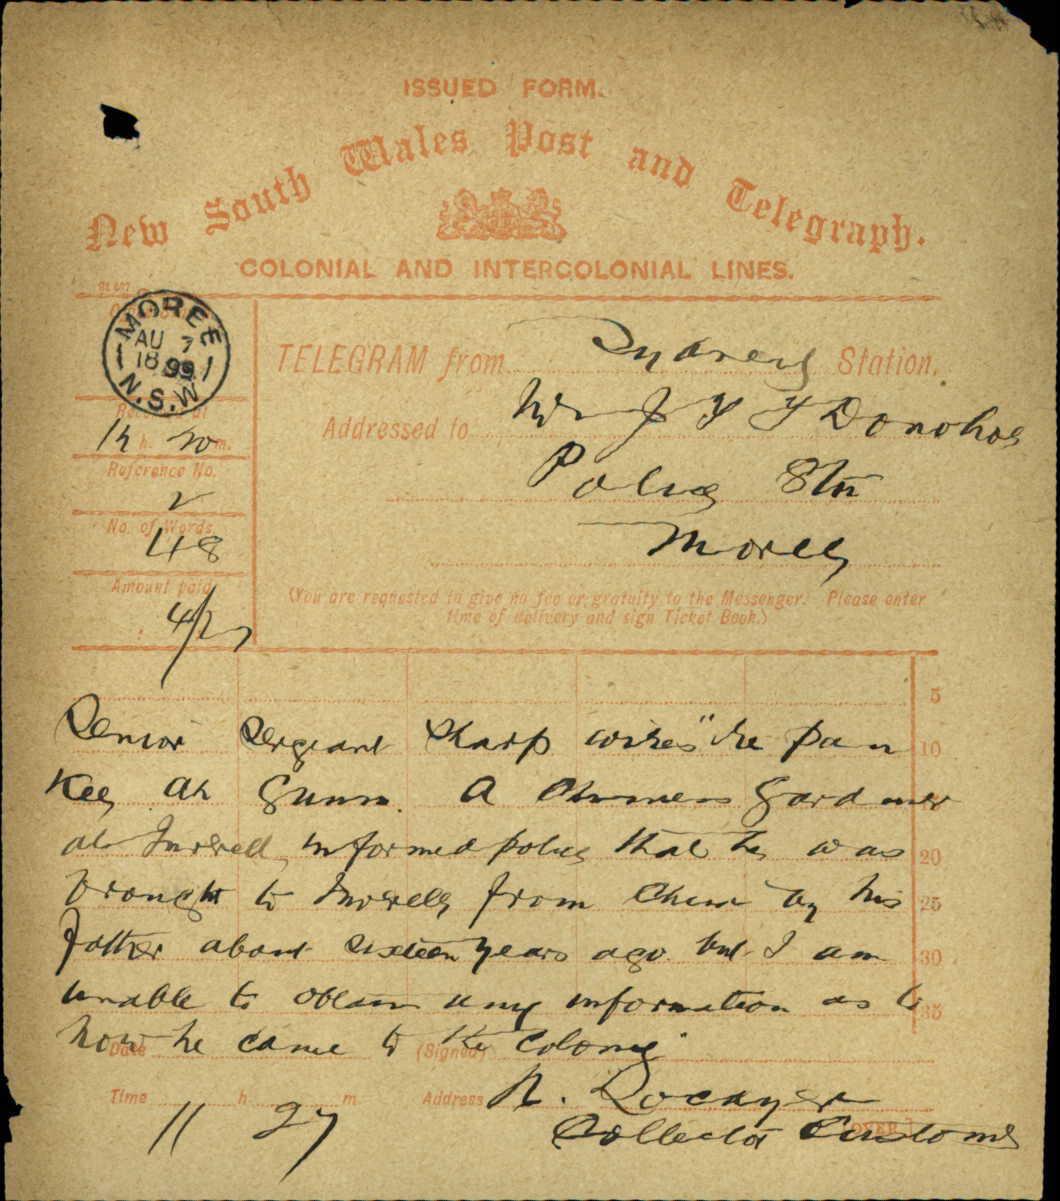 ISSUED FORM.
New South Wales Post and Telegraph.
COLONIAL AND INTERCOLONIAL LINES.
MOREE
AU 7
1899
N.S.W
TELEGRAM from Sydney Station.
Addressed to Mr J Donohoe
Police Stn
Moree
h. m.
Reference No.
No. of Words
48
Amount paid
4/2
(You are requested to give no fee or gratuity to the Messenger. Please enter
time of delivery and sign Ticket Book.)
5
Senior Sergeant Sharp wires "he 10
Kee Ah Gunn. A Chinese Gardener
at Inverell informed police that he was 20
brought to Inverell from China by his 25
father about sixteen years ago but I am 30
unable to obtain any information as to 35
how he came to the Colony"
Date (Signed)
Time 11 h 27 m Address N. Lockyer
Collector Customs